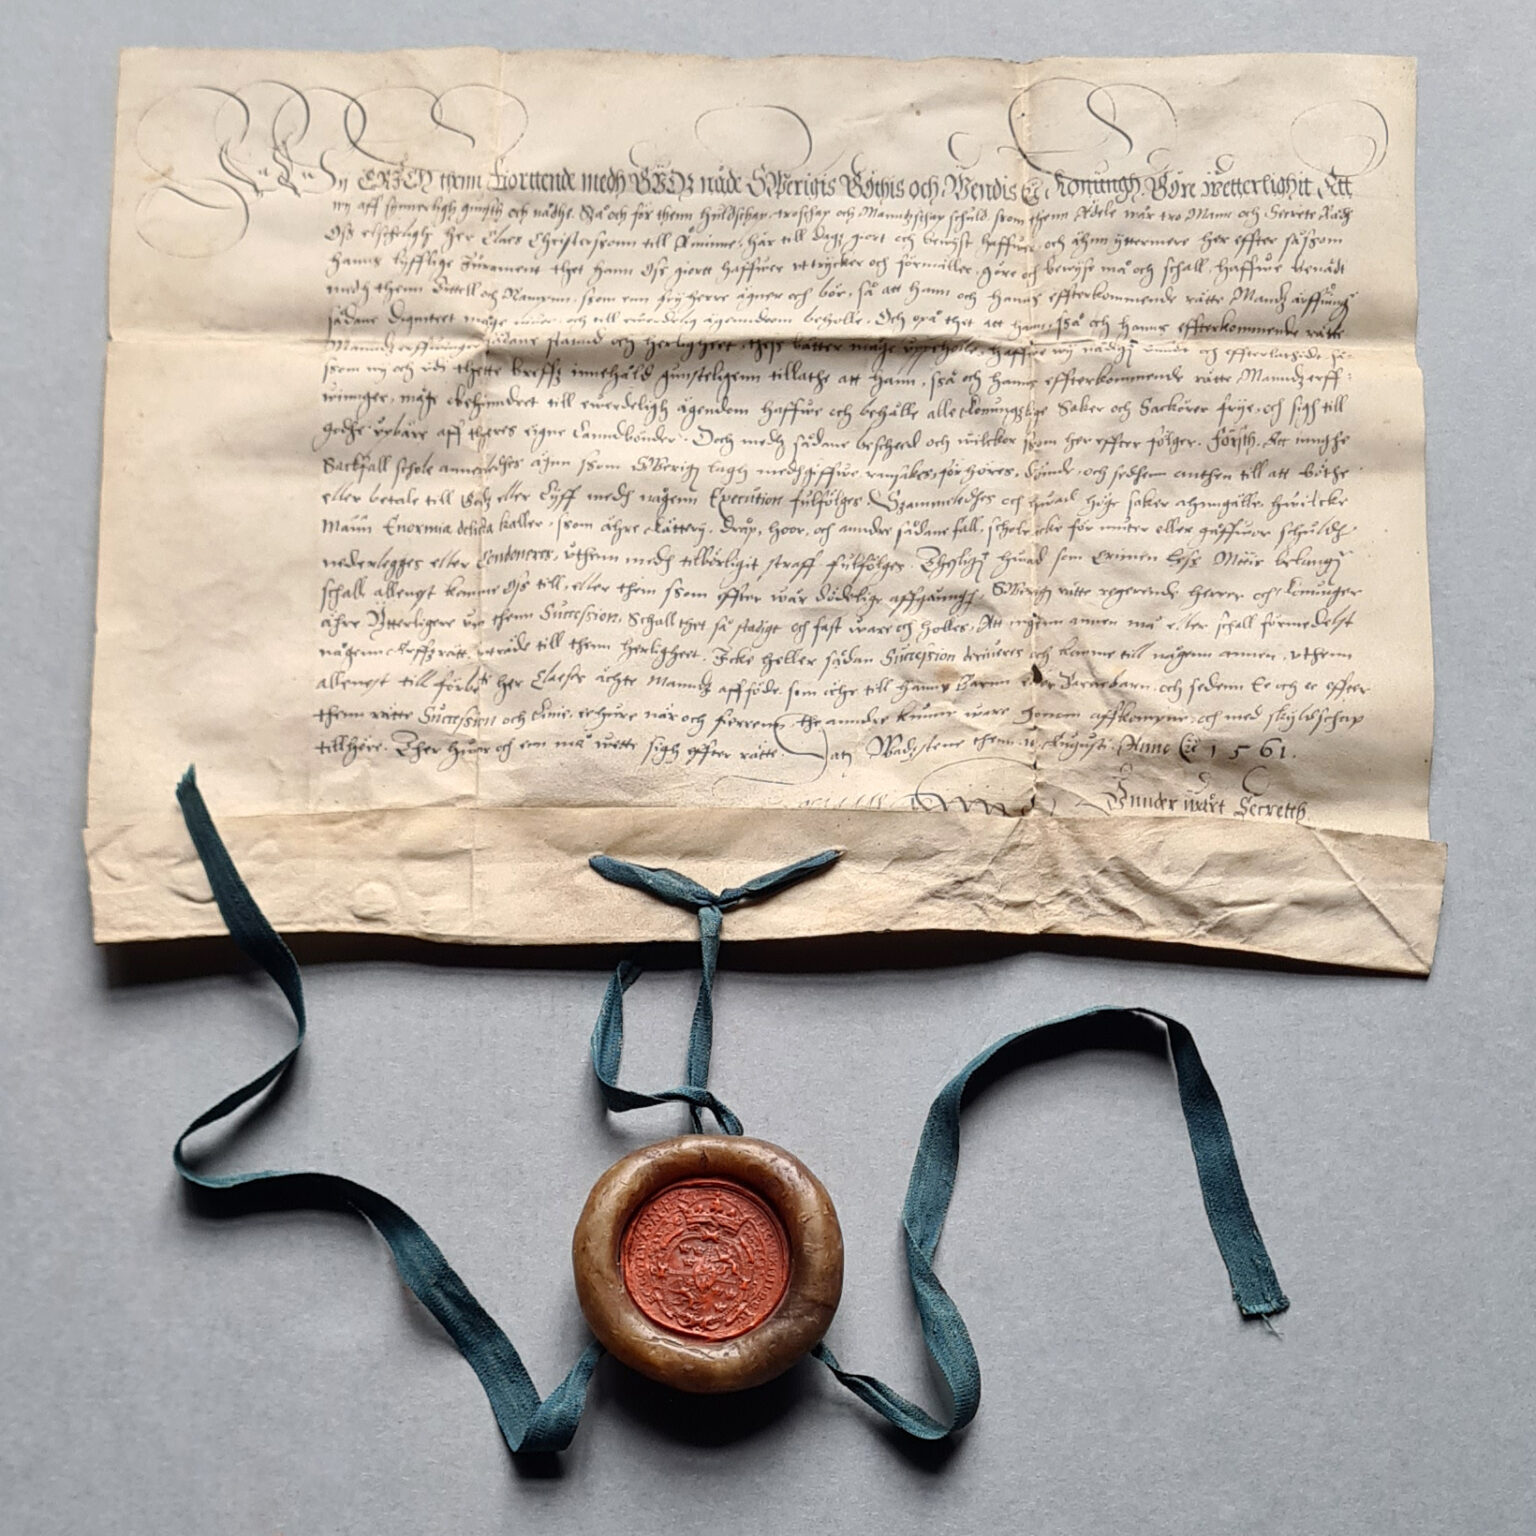 Wy ERICH thenn Fiorttende medh GUDZ nåde SWerigis Göthis och Wendis etc Konungh, Göre wetterlighit Att
wy aff synnerligh gunsth och nådhe. Så och för thenn huldschap, troschap och Manntzschap schuld, ssom thenn Ädele wår tro Mann och Secrete Rådh
Oss elscheligh her Claes Christersonn till Åminne, här till dags giort och bewijst haffwer, och ähnn yttermere her effter såssom
hanns lijfflige Jurament thet hann Oss giortt haffwer uttrycker och förmäller, göre och bewijse må och schall, haffwe benådt
medh thenn Tittell och Nampnn, ssom enn frij herre ägner och bör, så att hann och hanns effterkommende rätte Mandz ärffwing
sådane Digniteet måge niuta och till ewerdelig ägenndoom beholle. Och opå thet att hann, sså och hanns effterkommende rätte
Manndz erffwinger sådane stånnd och herligheet, thess bätter måge uppeholle, haffwe wij nådigst unndt och effterlatidt, så
ssom wij och udi thette breffz innehåld gunsteligenn tillathe att hann, sså och hanns effterkommende rätte Manndz erff-
winger, måge obehinndret till ewerdeligh ägendom haffwe och behålle alle Konungzlige Saker och Sackörer frije, och sigh till
godhe upbäre aff theres eigne Lanndbönder. Doch medh sådane bescheed och wilckor ssom her effter fölger. Försth, Att innghe
Sackfall schole annerledhes äjnn ssom SWerigz lagh medhgiffwe rannsakes, förhöres, dömde, och sedhenn anthen till att böthe
eller betale till Godz eller Lijff medh någenn Execution fulfölges. Szammeledhes och huad höge saker ahnngälle, hwilcke
Mann Enormia delicta kaller, ssom ähre Kättery, dråp, hoor, och anndre sådane fall, schole icke för muter eller gåffwor schuldh
nederlegges eller Condoneres, uthenn medh tilbörligit straff fulfölges. Theslijgest huad som Crimen læsæ Maiestatis belanger
schall allenest komme Oss till, eller them ssom effter wår dödelige affgånngh, SWerigz rätte regerende herrer och Konunger
ähre Ytterligere um thenn Succession, Schall thet så stadigt och fast ware och holles, Att ingenn annen må eller schall förmedelst
någenn Arffzrätt, uträde till thenn herligheet. Icke heller sådan Succession deriveres och komme till någenn annen, uthenn
allenest till förbete her Claeses ächte Manndz afföde, som ähr till hanns Barnn eller Barnebarn, och sedenn Ee och ee effter
thenn rätte Succession och Linie, eehure när och fierrenn the anndre kunne ware honom affkompne, och med skyldschap
tillhöre. Ther huar och een må wette sigh effter rätte. Datz Wadzstene thenn 11 Augusti. Anno etc 1561.
Unnder wårt Secreth.